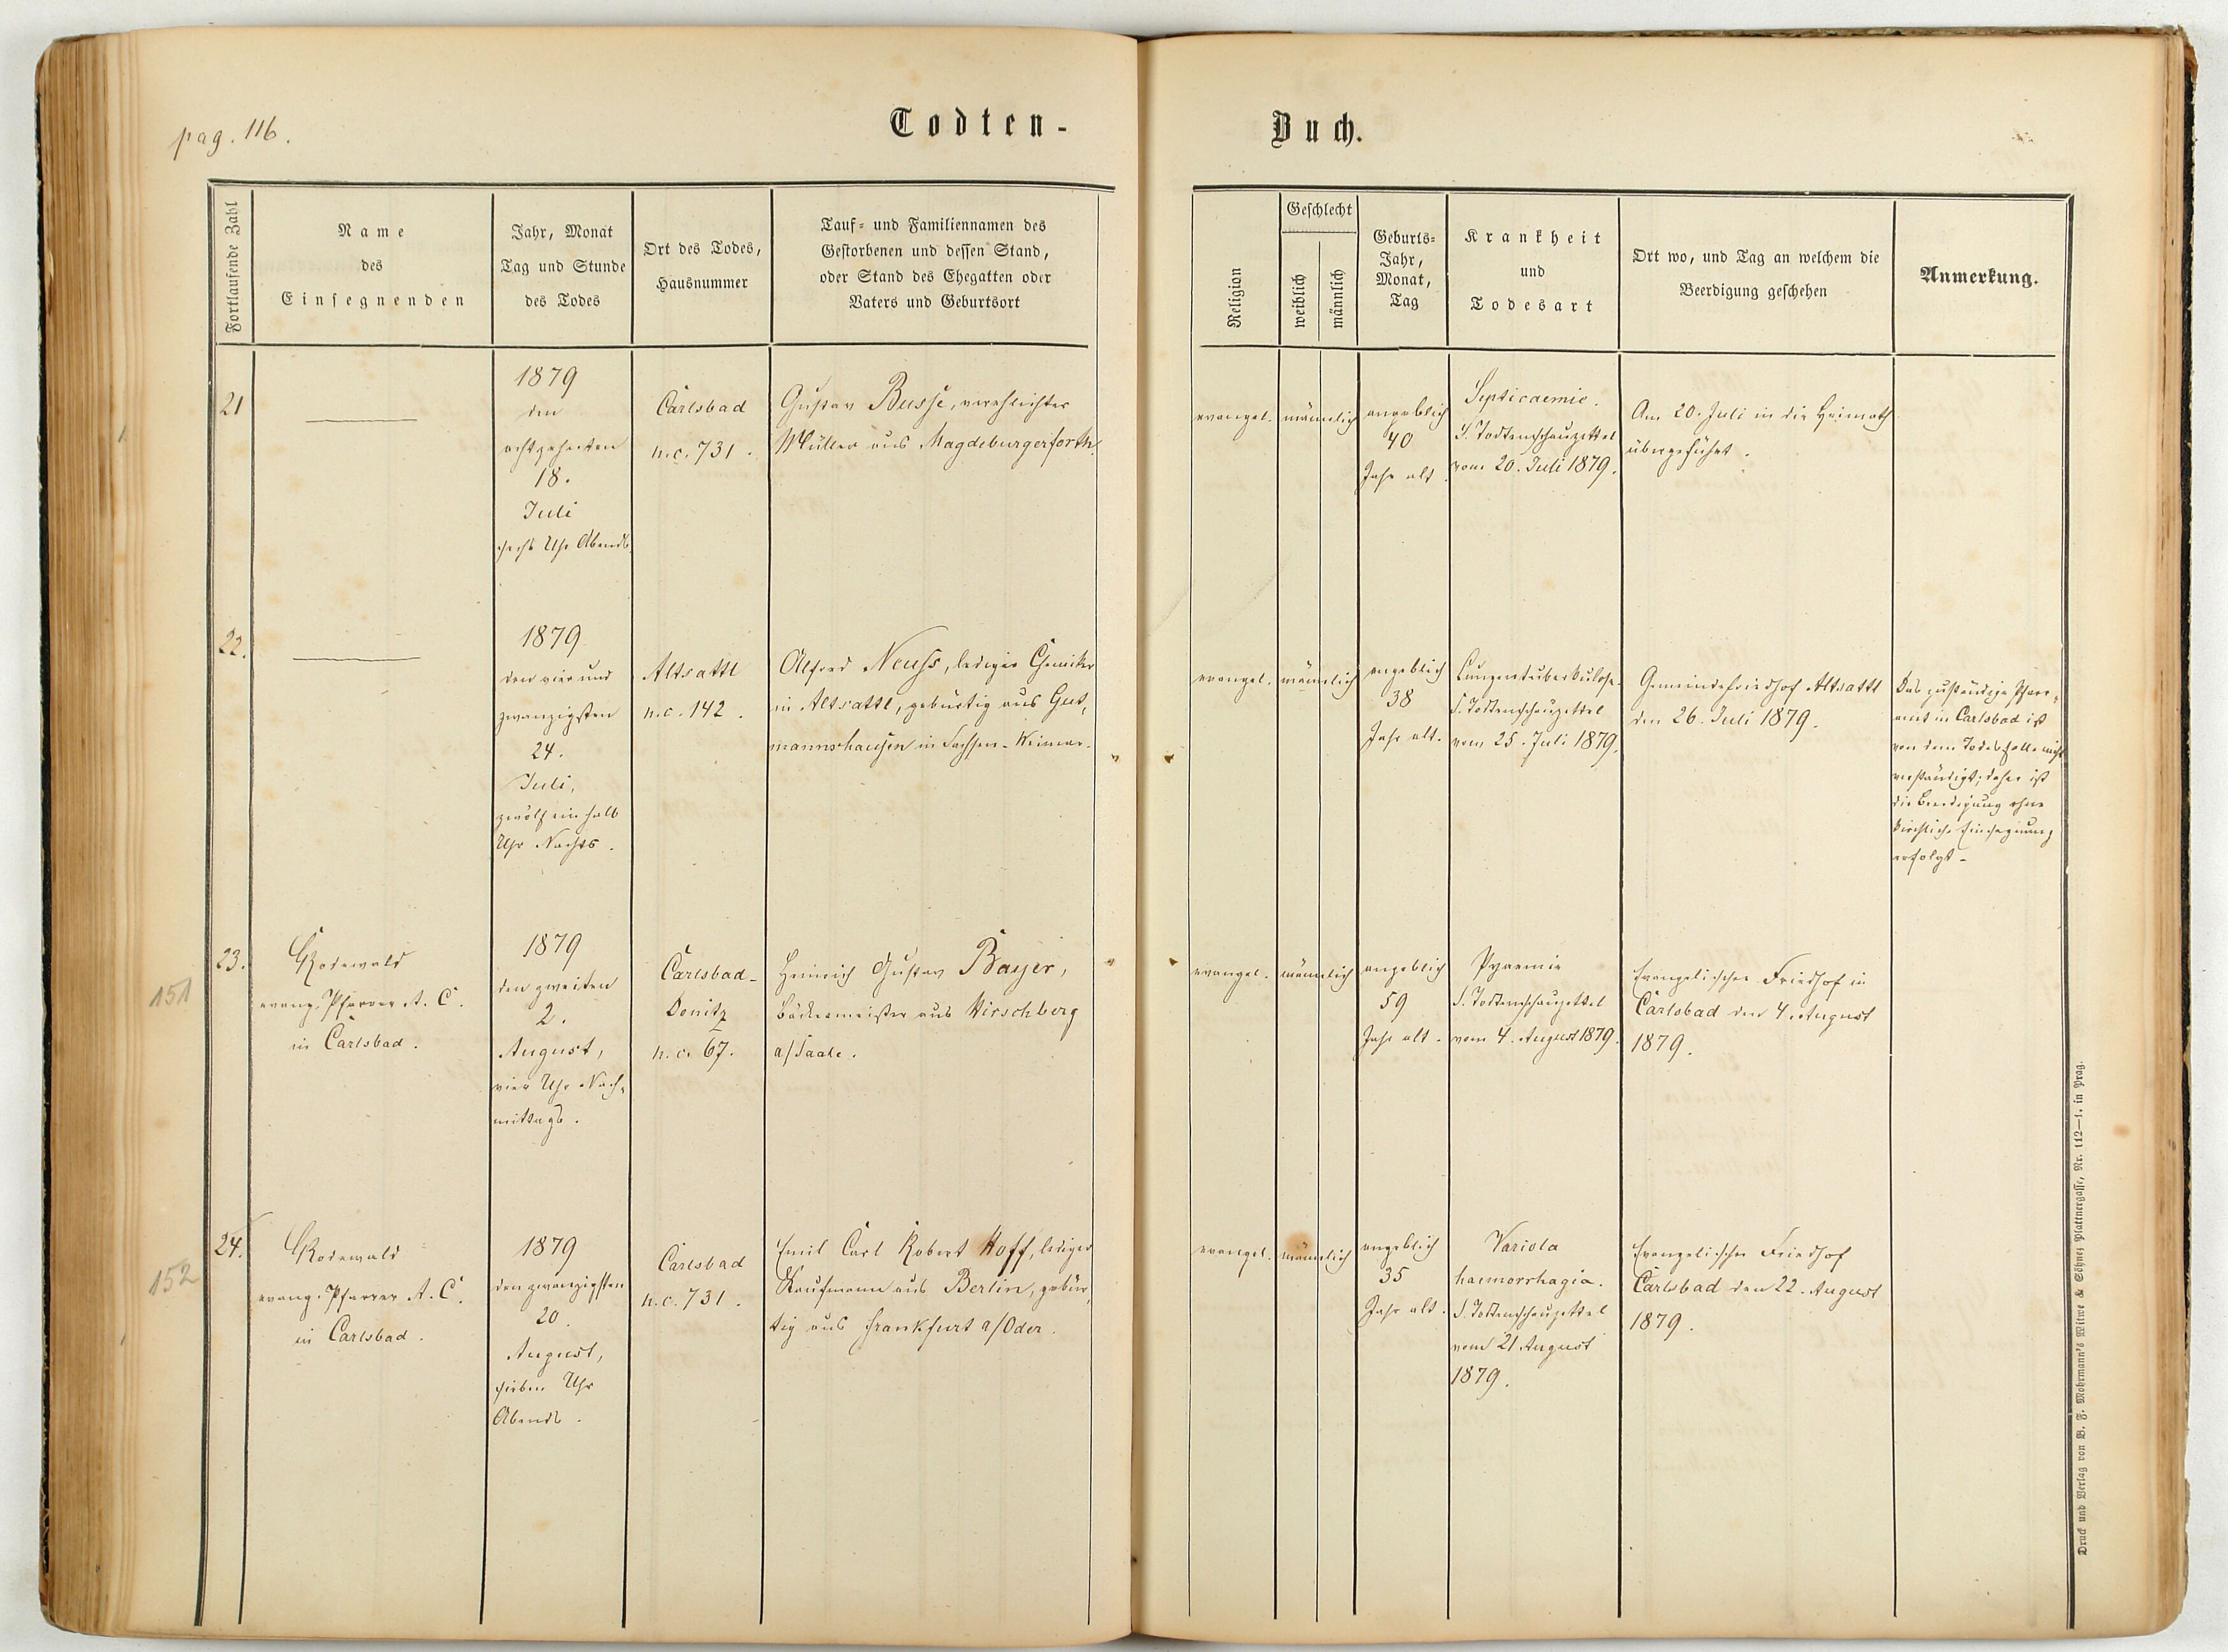 pag. 116.
Todten-
Buch.
Fortlaufende Zahl
Name
des
Einsegnenden
Jahr, Monat
Tag und Stunde
des Todes
Ort des Todes,
Hausnummer
Tauf- und Familiennamen des
Gestorbenen und dessen Stand,
oder Stand des Ehegatten oder
Vaters und Geburtsort
Religion
Geschlecht
weiblich
männlich
Geburts-
Jahr,
Monat,
Tag
Krankheit
und
Todesart
Ort wo, und Tag an welchem die
Beerdigung geschehen
Anmerkung.
21
1879
den
achtzehnten
18.
Juli
sechs Uhr Abends.
Carlsbad
n.c. 731.
Gustav Busse, verehelichter
Müller aus Magdeburgerforth.
evangel.
männlich
angeblich
40
Jahr alt.
Septicaemie.
S. Todtenschauzettel
vom 20. Juli 1879.
Am 20. Juli in die Heimath
übergeführt.
22.
1879
den vier und
zwanzigsten
24.
Juli,
zwölf ein halb
Uhr Nachts.
Altsattl
n.c. 142.
Alfred Neuss, lediger Chemiker
in Altsattl, gebürtig aus Gut,
mannshausen in Sachsen-Weimar.
evangel.
männlich
angeblich
38
Jahr alt.
Lungentuberkulose.
S. Todtenschauzettel
vom 25. Juli 1879.
Gemeindefriedhof Altsattl
den 26. Juli 1879.
Das zuständige Pfarr-
amt in Carlsbad ist
von dem Todesfalle nicht
verständigt; daher ist
die Beerdigung ohne
kirchliche Einsegnung
erfolgt-
151
23.
Rodewald
evang. Pfarrer A. C.
in Carlsbad.
1879
den zweiten
2.
August,
vier Uhr Nach-
mittags.
Carlsbad-
Donitz
n.c. 67.
Heinrich Gustav Bayer,
Bäckermeister aus Hirschberg
a/Saale.
evangel.
männlich
angeblich
59
Jahr alt.
Pyaemie
S. Todtenschauzettel
vom 4. August 1879.
Evangelischer Friedhof in
Carlsbad den 4. August
1879.
152
24.
Rodewald
evang. Pfarrer A. C.
in Carlsbad.
1879
den zwanzigsten
20.
August,
sieben Uhr
Abends.
Carlsbad
n.c. 731.
Emil Carl Robert Hoff, lediger
Kaufmann aus Berlin, gebür,
tig aus Frankfurt a/Oder.
evangel.
männlich
angeblich
35
Jahr alt.
Variola
haemorrhagia.
S. Todtenschauzettel
vom 21 August
1879.
Evangelischer Friedhof
Carlsbad den 22. August
1879.
Druck und Verlag von B. F. Mohrmann's Witwe & Söhne, Plattnergasse, Nr. 112—1. in Prag.